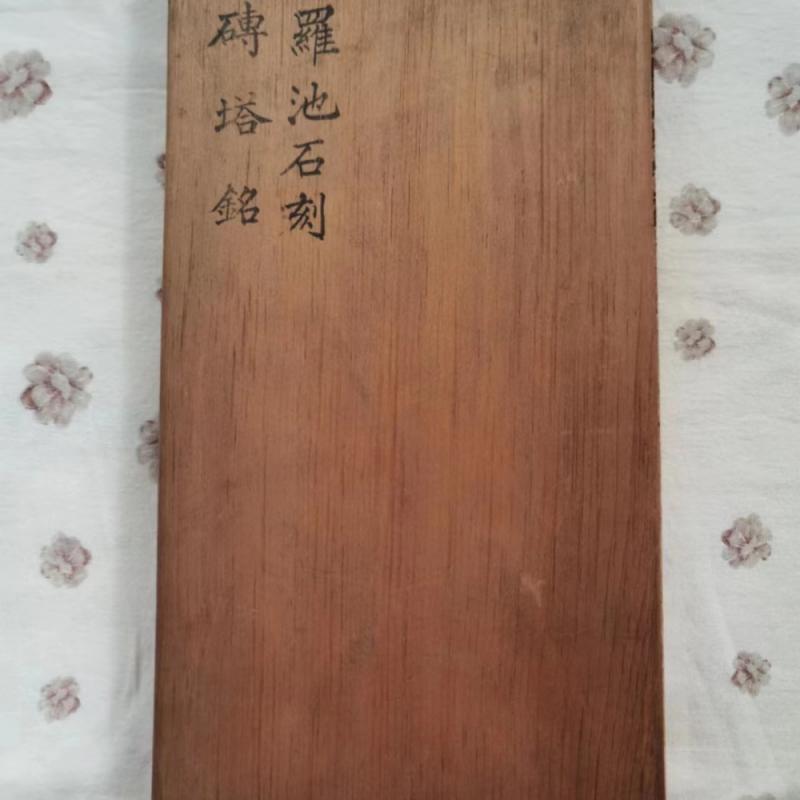 羅池石刻
磚塔銘